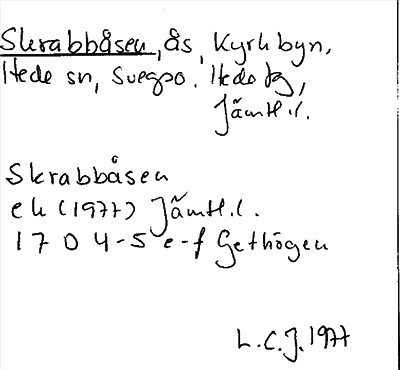 Skrabbåsen, ås, Kyrkbyn,
Hede sn, Svegso. Hede tg,
Jämtl.l.
Skrabbåsen
ek (1977) Jämtl.l.
1704-5 e-f Gethögen
L.C.J. 1977